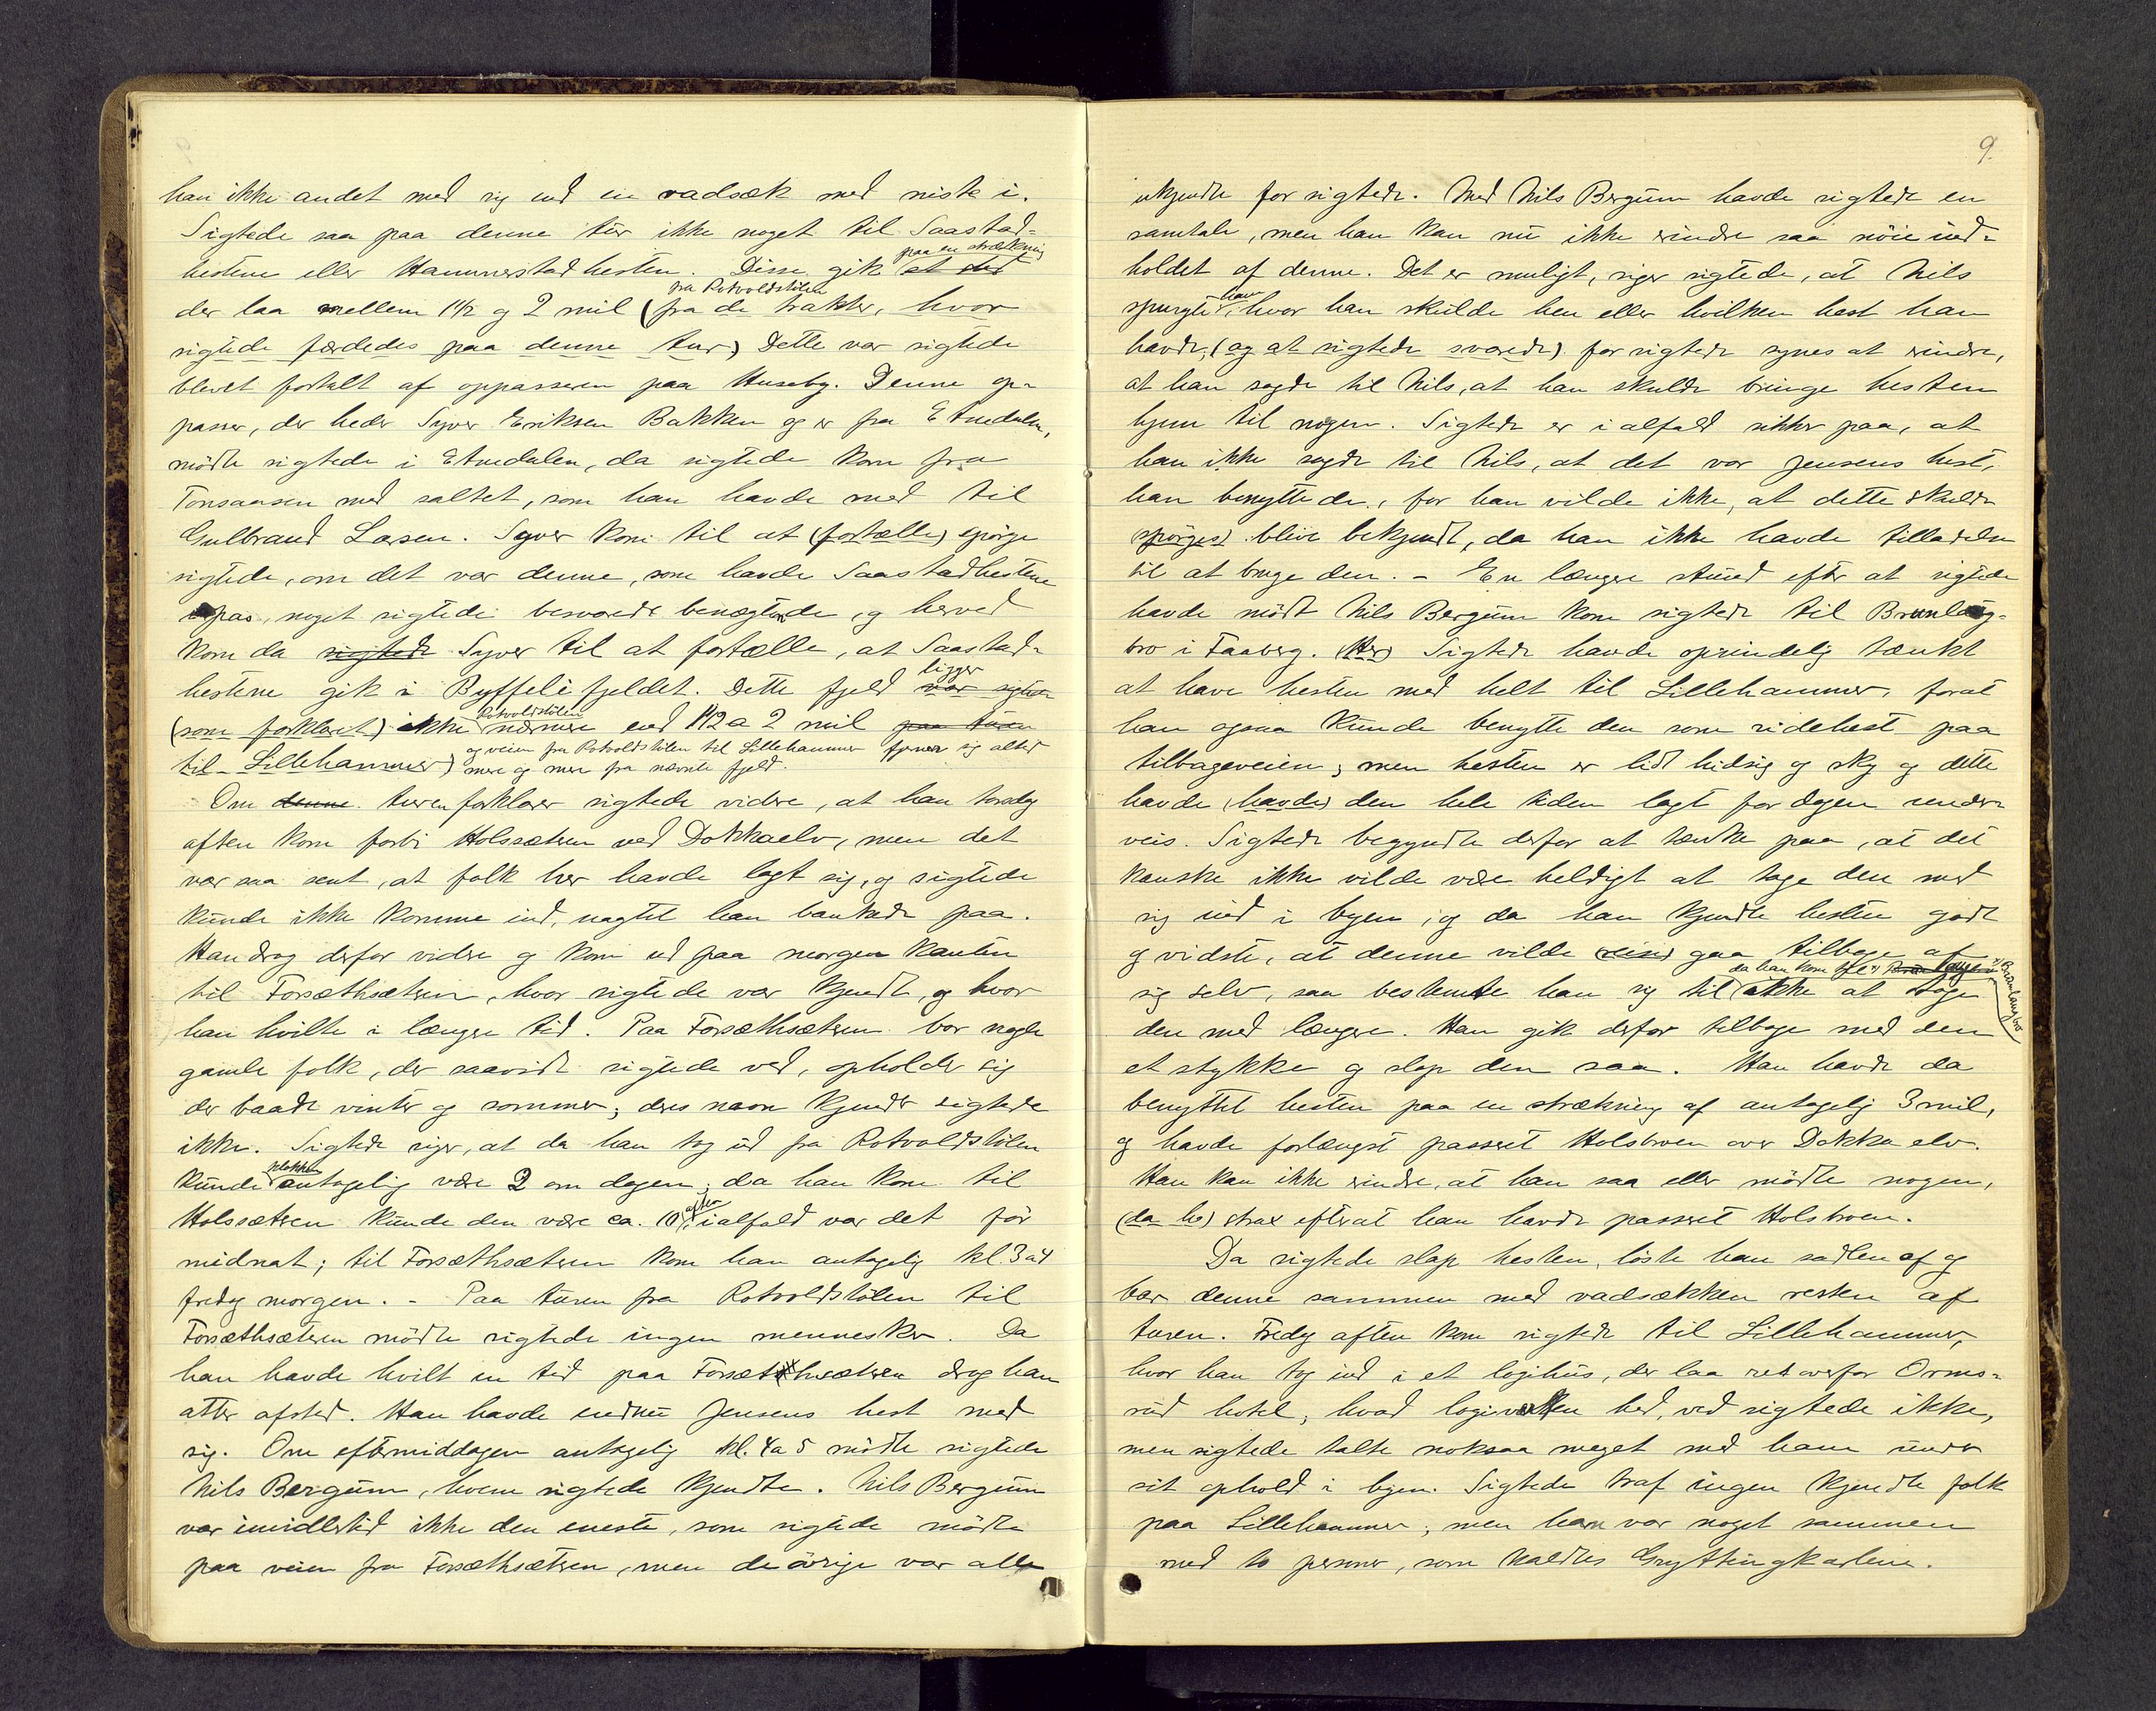 han ikke andet med sig end en vadsæk med niste i.
Sigtede saa paa denne tür ikke noget til Saastad-
hestene eller Hammerstadhesten. Disse gik et sted paa en strækning
der laa mellem 1 1/2 og 2 mil fra Rotvoldstölen (fra de trakter, hvor
sigtede færdedes paa denne tur) Dette var sigtede
blevet fortalt af oppasseren paa Huseby. Denne op-
passer, der heder Syver Eriksen Bakken og er fra Etnedalen,
mödte sigtede i Etnedalen, da sigtede kom fra
Tonsaasen med saltet, som han havde med til
Gulbrand Larsen. Syver kom til at (fortælle) spörge
sigtede, om det var denne, som havde Saastadhestene
i pas, noget sigtede besvarede benægtende, og herved
kom da sigtede Syver til at fortælle, at Saastad-
hestene gik i Byffeli fjeldet. Dette fjeld var sigtede ligger
(som forklaret) ikke Rotvoldstölen nærmere end 1 1/2 a 2 mil paa turen
til Lillehammer) og veien fra Rotvoldstölen til Lillehammer fjerner sig altid
mere og mere fra nævnte fjeld.
Om denne turen forklarer sigtede videre, at han torsdag
aften kom forbi Holssætren ved Dokkaelv, men det
var saa sent, at folk her havde lagt sig, og sigtede
kunde ikke komme ind, uagtet han bankede paa.
Han drog derfor videre og kom ud paa morgen kanten
til Forsæthsætren, hvor sigtede var kjendt, og hvor
han hvilte i længre tid. Paa Forsæthsætren bor nogle
gamle folk, der saavidt sigtede ved, opholder sig
der baade vinter og sommer; deres navn kjender sigtede
ikke. Sigtede siger, at da han tog ud fra Rotvoldstölen
kunde klokken antagelig være 2 om dagen; da han kom til
Holssætren kunde den være ca. 10 aften, ialfald var det för
midnat; til Forsæthsætren kom han antagelig kl. 3
fredag morgen. - Paa turen fra Rotvoldstölen til
Forsæthsætren mödte sigtede ingen mennesker. Da
han havde hvilt en tid paa Forsæthsætren drog han
atter afsted. Han havde endnu Jensens hest med
sig. Om eftermiddagen antagelig kl. 4 a 5 mödte sigtede
Nils Bergum, hvem sigtede kjendte. Nils Bergum
var imidlertid ikke den eneste, som sigtede mödte
paa veien fra Forsæthsætren, men de övrige var alle
9.
ukjendte for sigtede. Med Nils Bergum havde sigtede en
samtale, men han kan nu ikke erindre saa nöie ind-
holdet af denne. Det er muligt, siger sigtede, at Nils
spurgte ham, hvor han skulde hen eller hvilken hest han
havde, (og at sigtede svarede) for sigtede synes at erindre,
at han sagde til Nils, at han skulde bringe hesten
hjem til nogen. Sigtede er i alfald sikker paa, at
han ikke sagde til Nils, at det var Jensens hest,
han benyttede, for han vilde ikke, at dette skulde
(spörges) blive bekjendt, da han ikke havde tilladelse
til at bruge den. - En længere stund efter at sigtede
havde mödt Nils Bergum kom sigtede til Brunlaug-
bro i Faaberg. (Her) Sigtede havde oprindelig tænkt
at have hesten med helt til Lillehammer, forat
han ogsaa kunde benytte den som ridehest paa
tilbageveien; men hesten er lidt hidsig og sky og dette
havde (havde) den hele tiden lagt for dagen under-
veis. Sigtede begyndte derfor at tænke paa, at det
kanske ikke vilde være heldigt at tage den med
sig ind i byen, og da han kjendte hesten godt
og vidste, at denne vilde gaa tilbage af
sig selv, saa bestemte han sig til da han kom til Brunlaugbro ikke at tage
den med længere. Han gik derfor tilbage med den
et stykke og slap den saa. Han havde da
benyttet hesten paa en strækning af antagelig 3 mil,
og havde forlængst passeret Holsbroen over Dokka elv.
Han kan ikke erindre, at han saa eller mödte nogen,
(da he) strax efterat han havde passeret Holsbroen.
Da sigtede slap hesten, löste han sadlen af og
bar denne sammen med vadsækken resten af
turen. Fredag aften kom sigtede til Lillehammer,
hvor han tog ind i et logihus, der laa ret overfor Orms-
rud hotel, hvad logiverten hed, ved sigtede ikke,
men sigtede talte noksaa meget med ham under
sit ophold i byen. Sigtede traf ingen kjendte folk
paa Lillehammer; men han var noget sammen
med to personer, som kaldtes Gryttingkarlene.